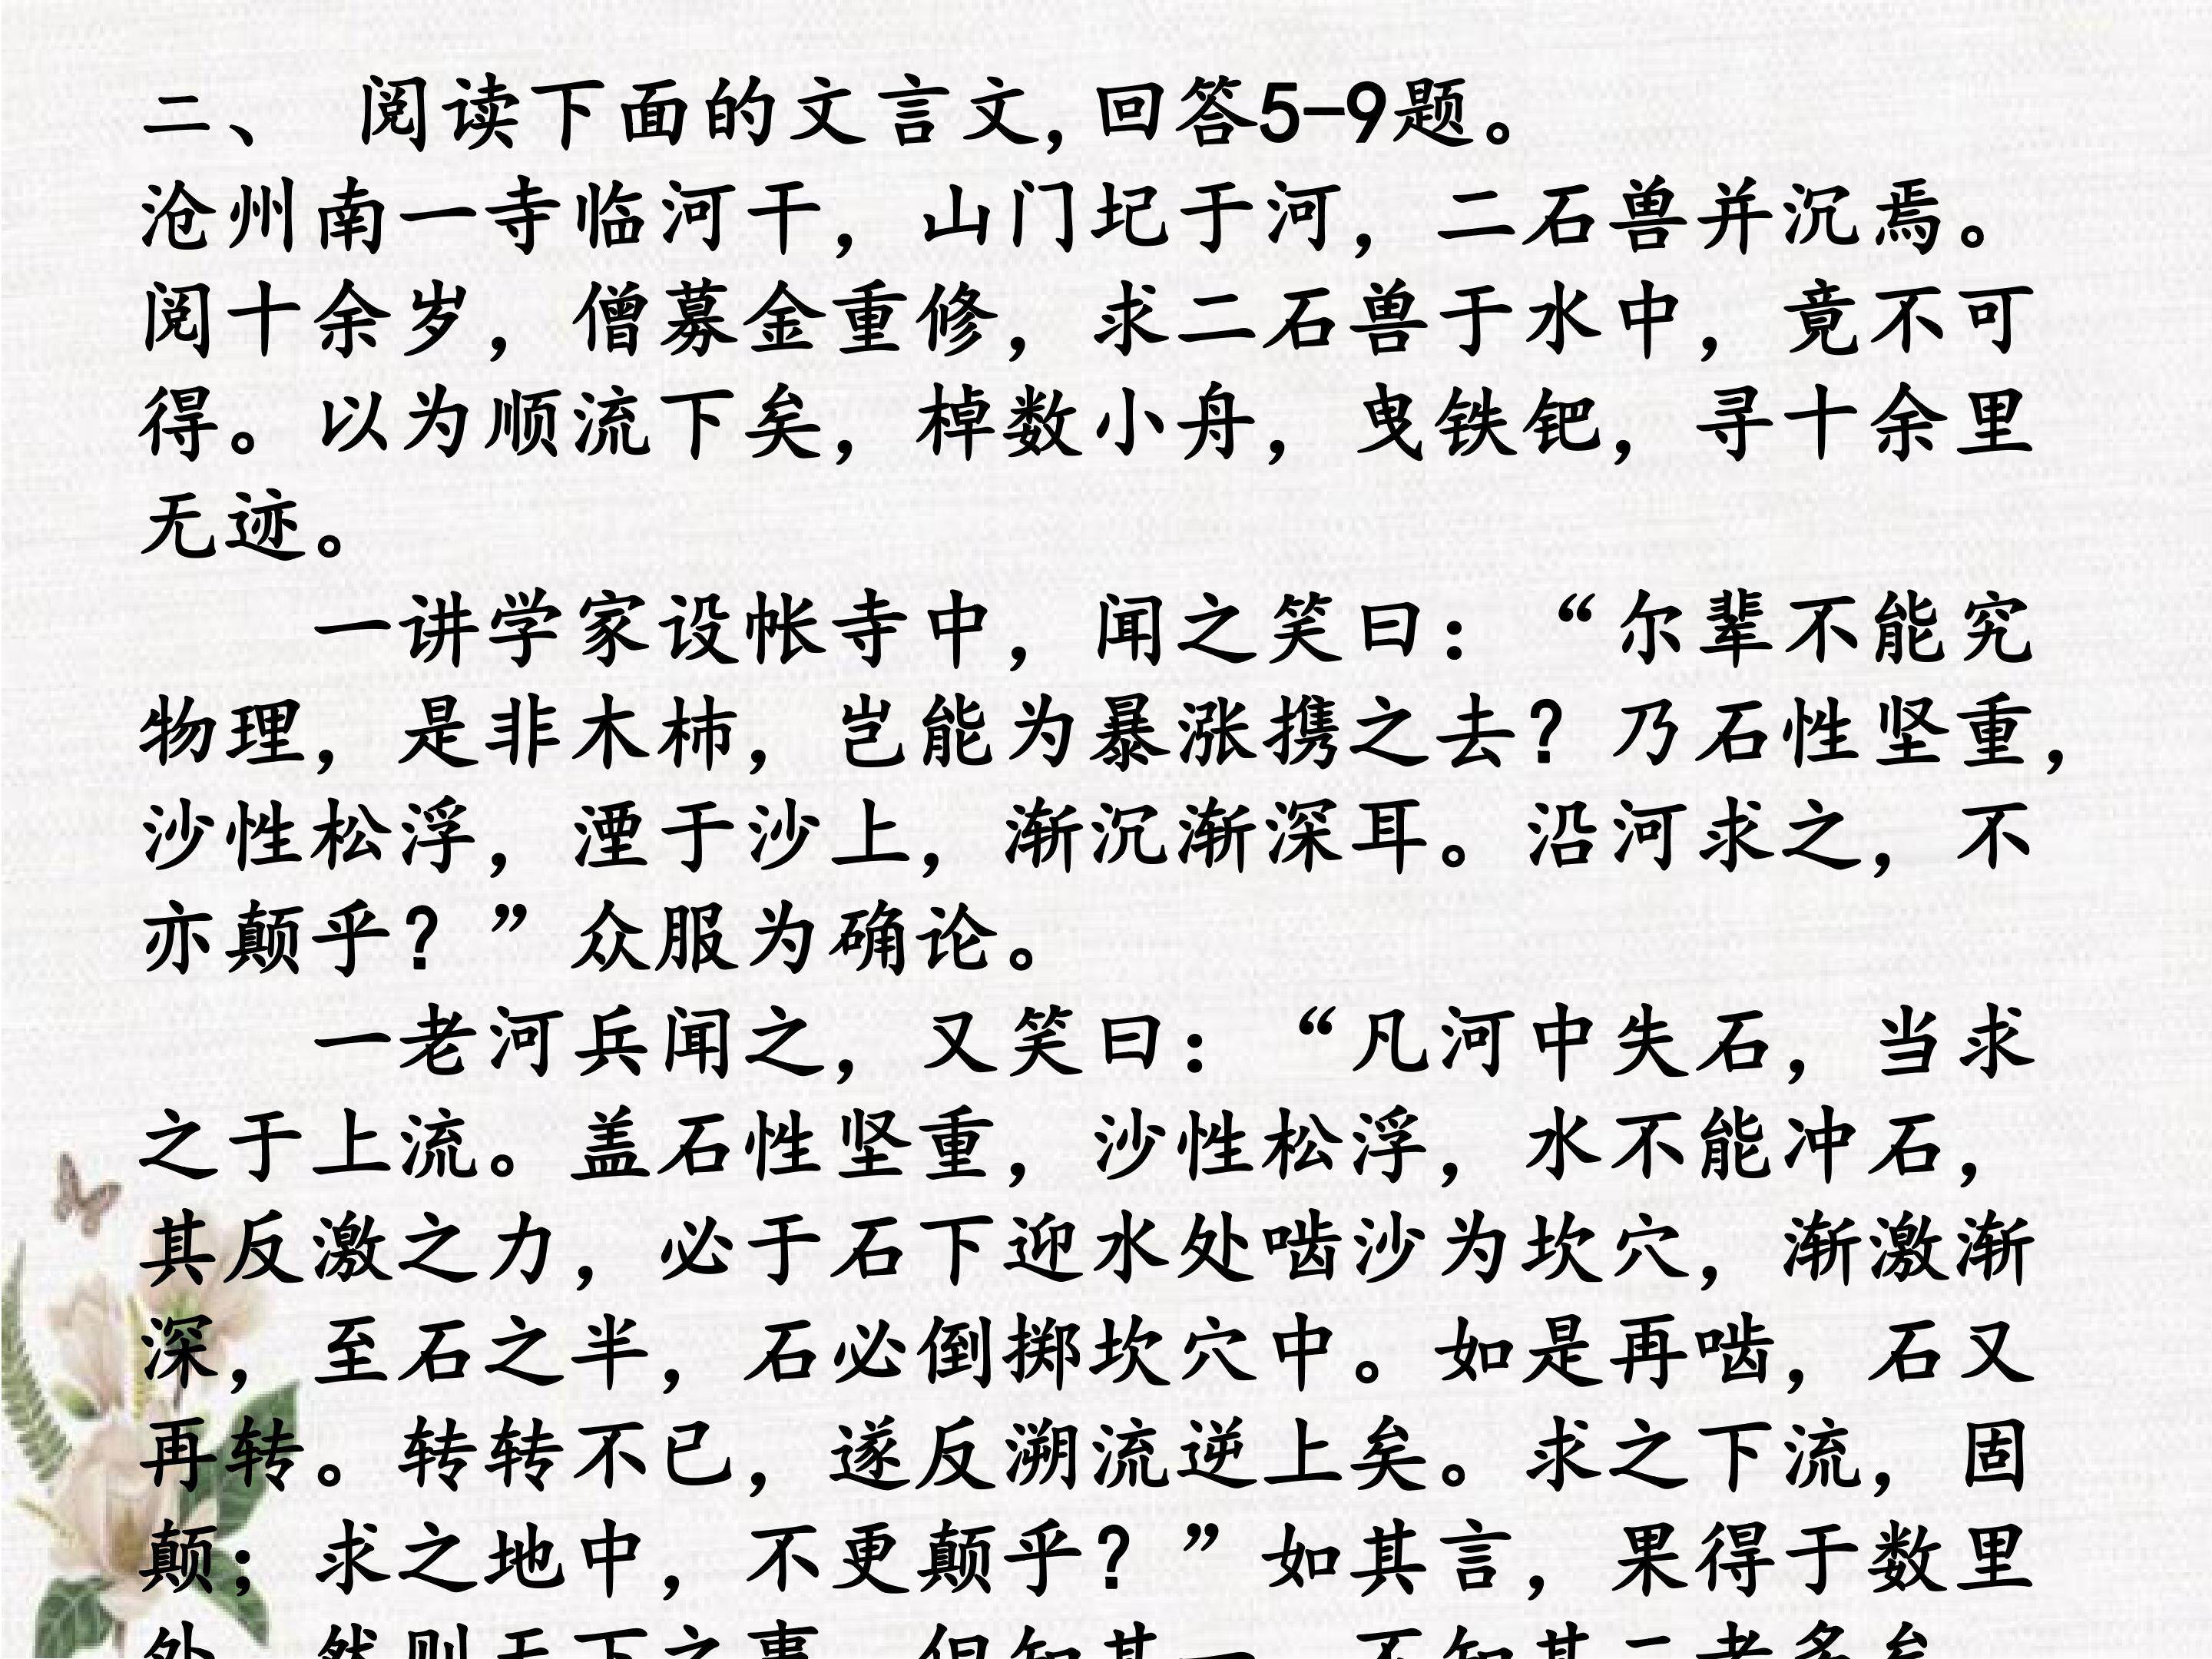 二、 阅读下面的文言文,回答5-9题。
沧州南一寺临河干，山门圮于河，二石兽并沉焉。
阅十余岁，僧募金重修，求二石兽于水中，竟不可
得。以为顺流下矣，棹数小舟，曳铁钯，寻十余里
无迹。
一讲学家设帐寺中，闻之笑曰：“尔辈不能究
物理，是非木杮，岂能为暴涨携之去？乃石性坚重，
沙性松浮，湮于沙上，渐沉渐深耳。沿河求之，不
亦颠乎？”众服为确论。
一老河兵闻之，又笑曰：“凡河中失石，当求
之于上流。盖石性坚重，沙性松浮，水不能冲石，
其反激之力，必于石下迎水处啮沙为坎穴，渐激渐
深，至石之半，石必倒掷坎穴中。如是再啮，石又
再转。转转不已，遂反溯流逆上矣。求之下流，固
颠；求之地中，不更颠乎？”如其言，果得于数里
处。然则天下之事，但知其一，不知其二者多矣